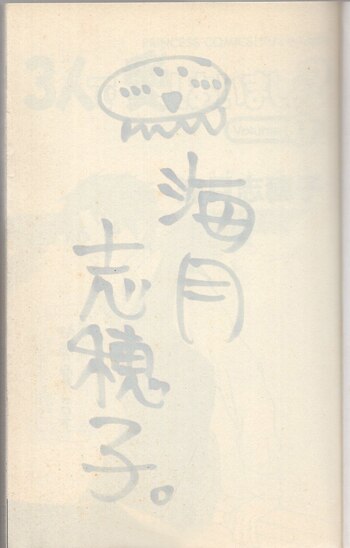 海月
志穂子。